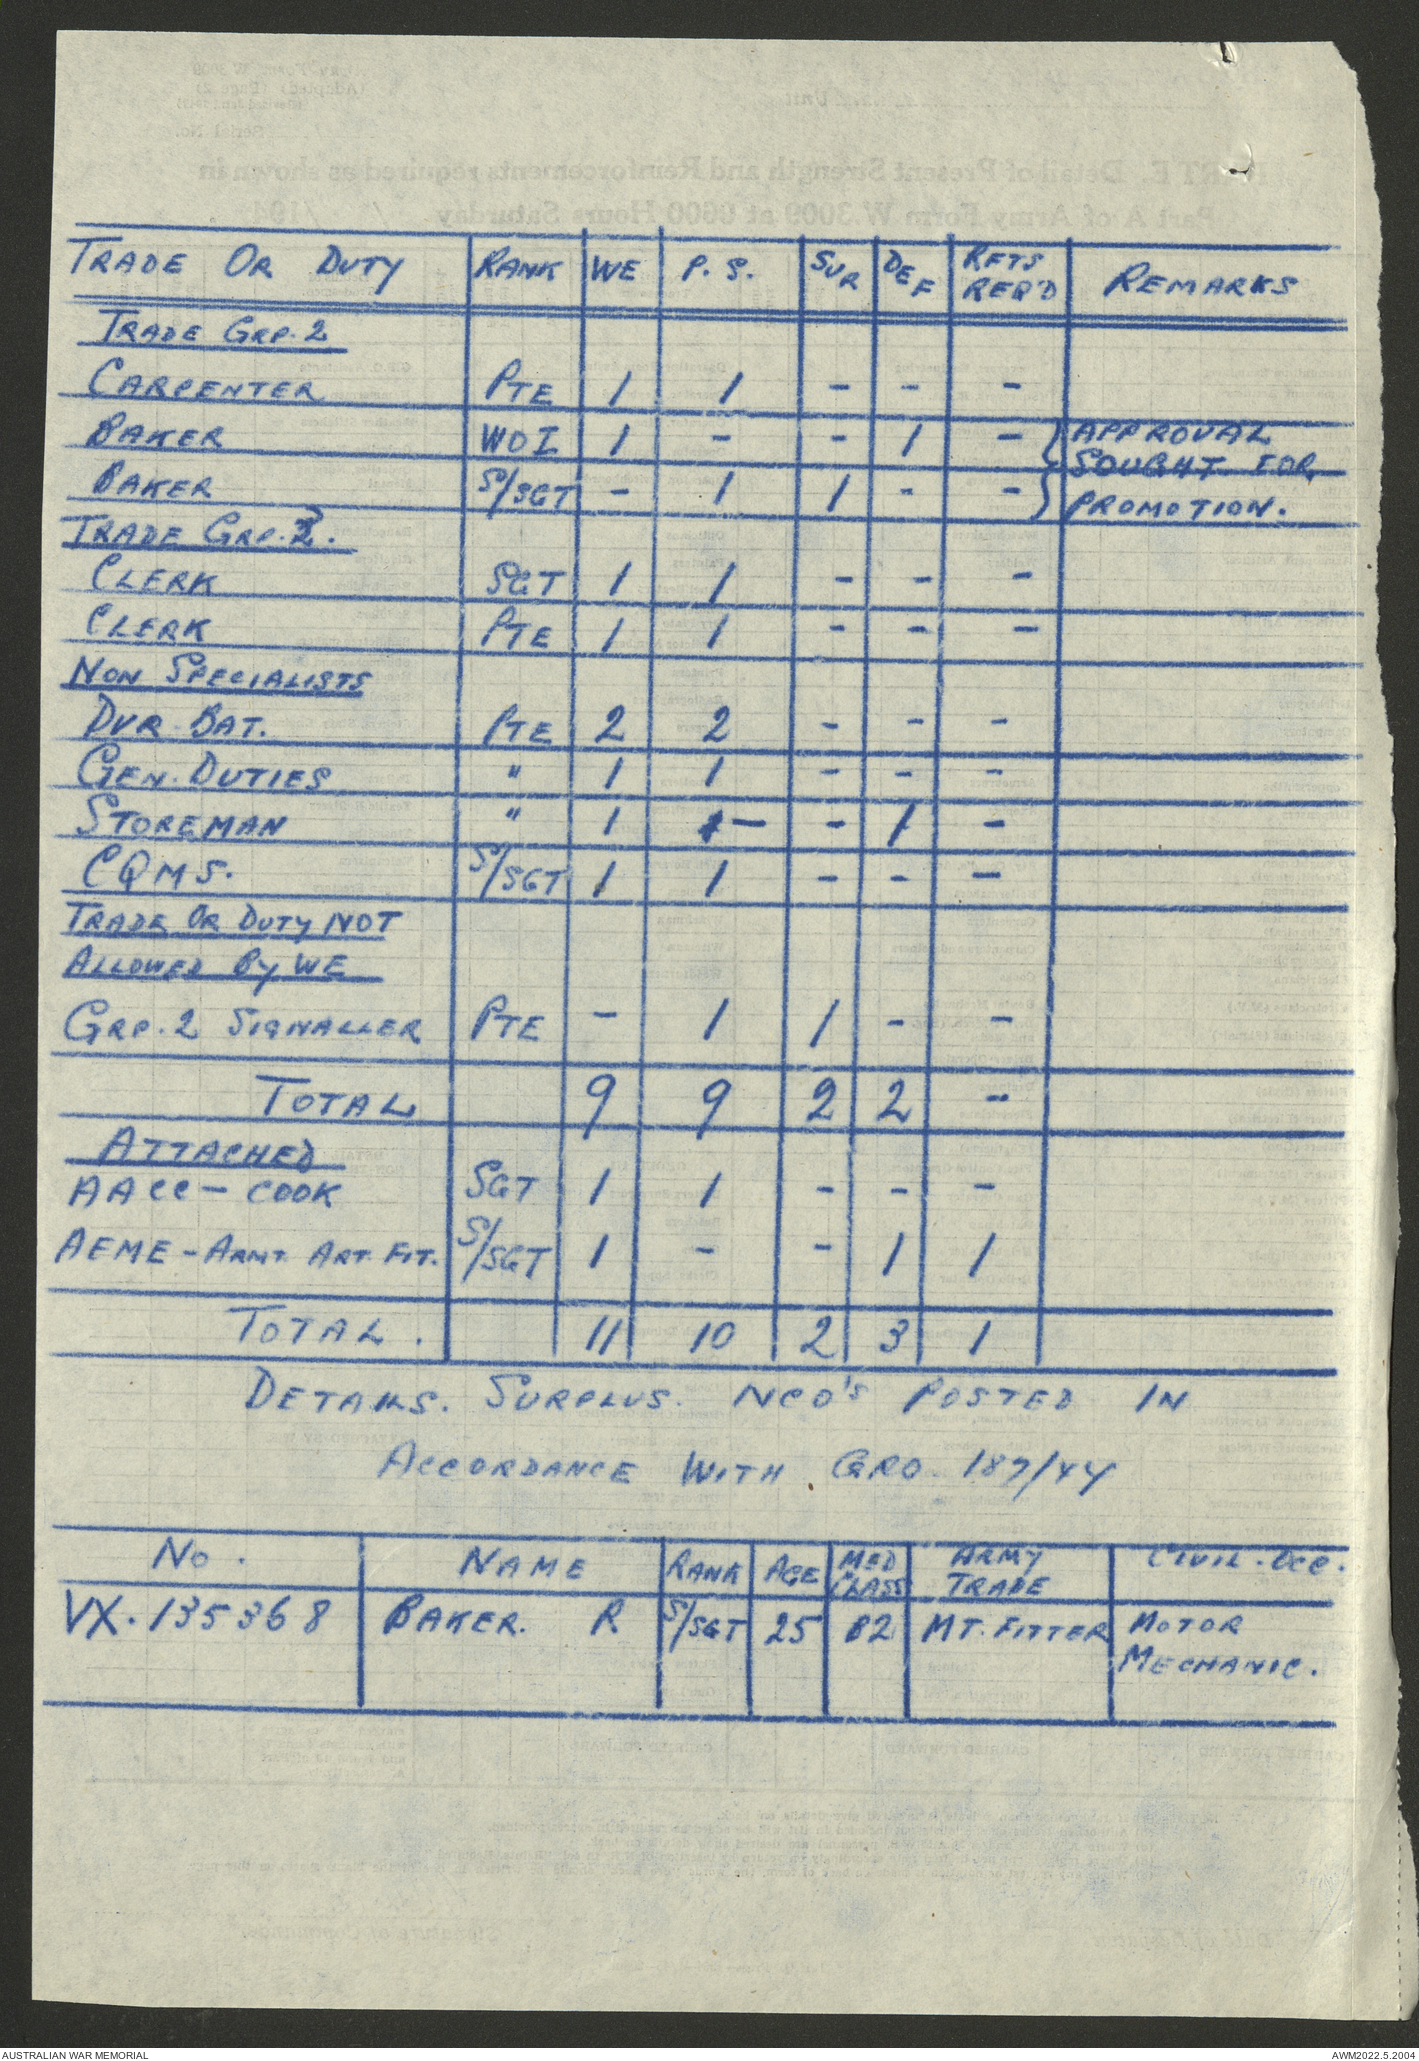 TRADE OR DUTY RANK WE P.S. SUR DEF RFTS REQ'D REMARKS
TRADE GRP. 2
CARPENTER PTE 1 1 - - -
BAKER WOI 1 - - 1 - APPROVAL
SOUGHT FOR
BAKER S/SGT - 1 1 - - PROMOTION.
TRADE GRP. 2.
CLERK SGT 1 1 - - -
CLERK PTE 1 1 - - -
NON SPECIALISTS
DVR. BAT. PTE 2 2 - - -
GEN. DUTIES " 1 1 - - -
STOREMAN " 1 - - 1 -
CQMS. S/SGT 1 1 - - -
TRADE OR DUTY NOT
ALLOWED BY WE
GRP. 2 SIGNALLER PTE - 1 1 - -
TOTAL 9 9 2 2 -
ATTACHED
AACC - COOK SGT 1 1 - - -
AEME - ARMT. ART. FIT. S/SGT 1 - - 1 1
TOTAL. 11 10 2 3 1
DETAILS. SURPLUS. NCO'S POSTED IN
ACCORDANCE WITH GRO. 187/44
No. NAME RANK AGE MED CLASS ARMY TRADE CIVIL. OCC.
VX. 135368 BAKER. R. S/SGT 25 B2 MT. FITTER MOTOR
MECHANIC.
AUSTRALIAN WAR MEMORIAL AWM2022.5.2004